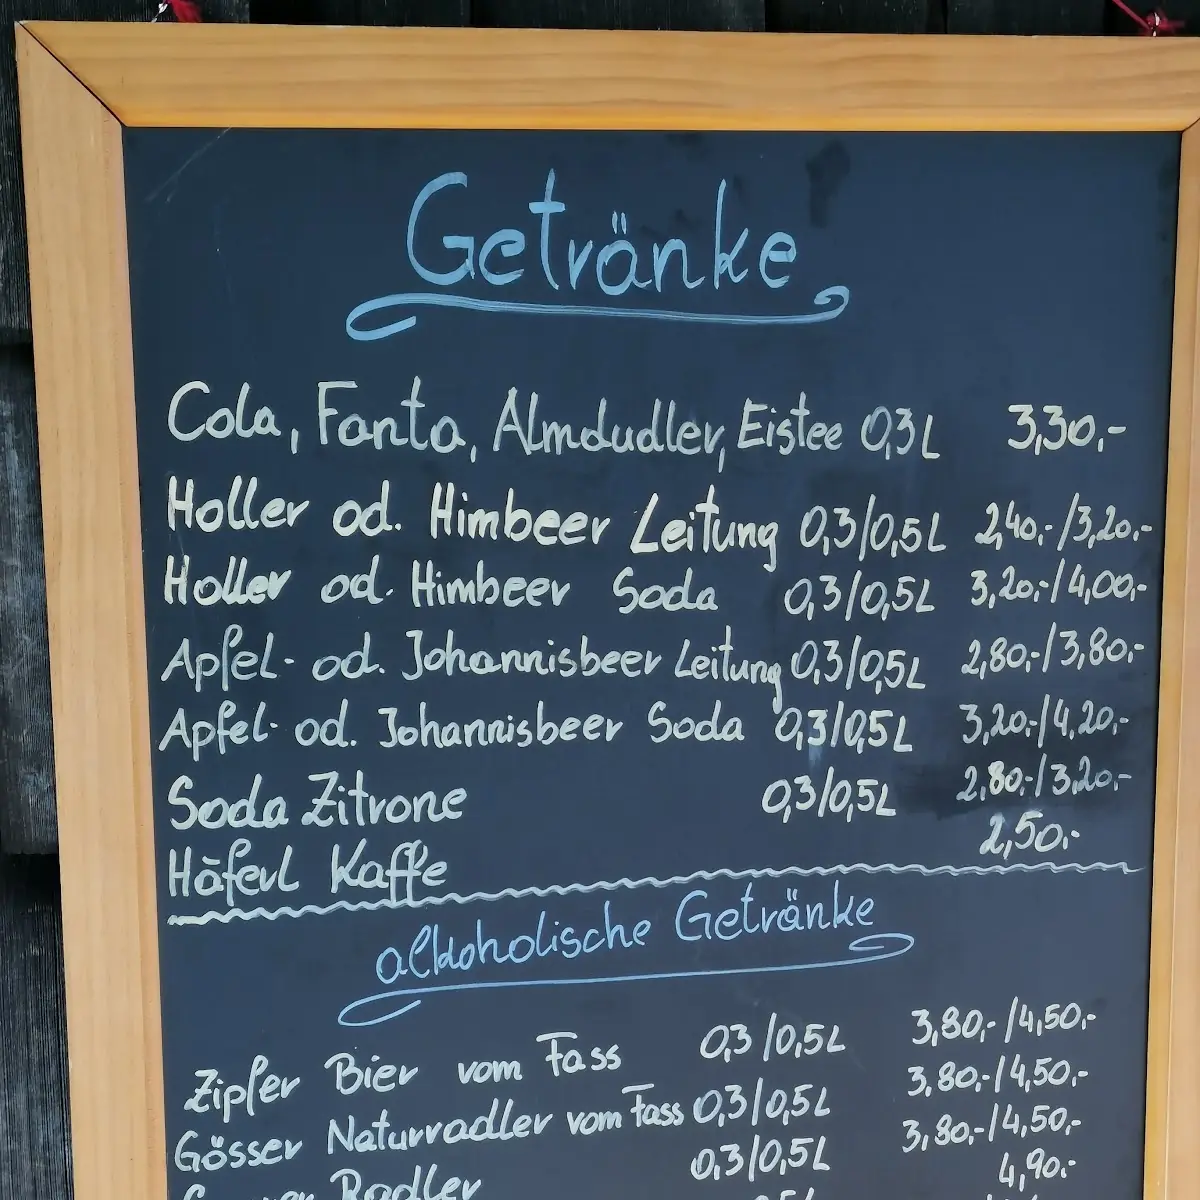 Getränke
Cola, Fanta, Almdudler, Eistee 0,3L 3,30,-
Holler od. Himbeer Leitung 0,3/0,5L 2,40,-/3,20,-
Holler od. Himbeer Soda 0,3/0,5L 3,20,-/4,00,-
Apfel- od. Johannisbeer Leitung 0,3/0,5L 2,80,-/3,80,-
Apfel- od. Johannisbeer Soda 0,3/0,5L 3,20,-/4,20,-
Soda Zitrone 0,3/0,5L 2,80,-/3,20,-
Häferl Kaffe 2,50,-
alkoholische Getränke
Zipfer Bier vom Fass 0,3/0,5L 3,80,-/4,50,-
Gösser Naturradler vom Fass 0,3/0,5L 3,80,-/4,50,-
Radler 0,3/0,5L 3,80,-/4,50,-
4,90,-